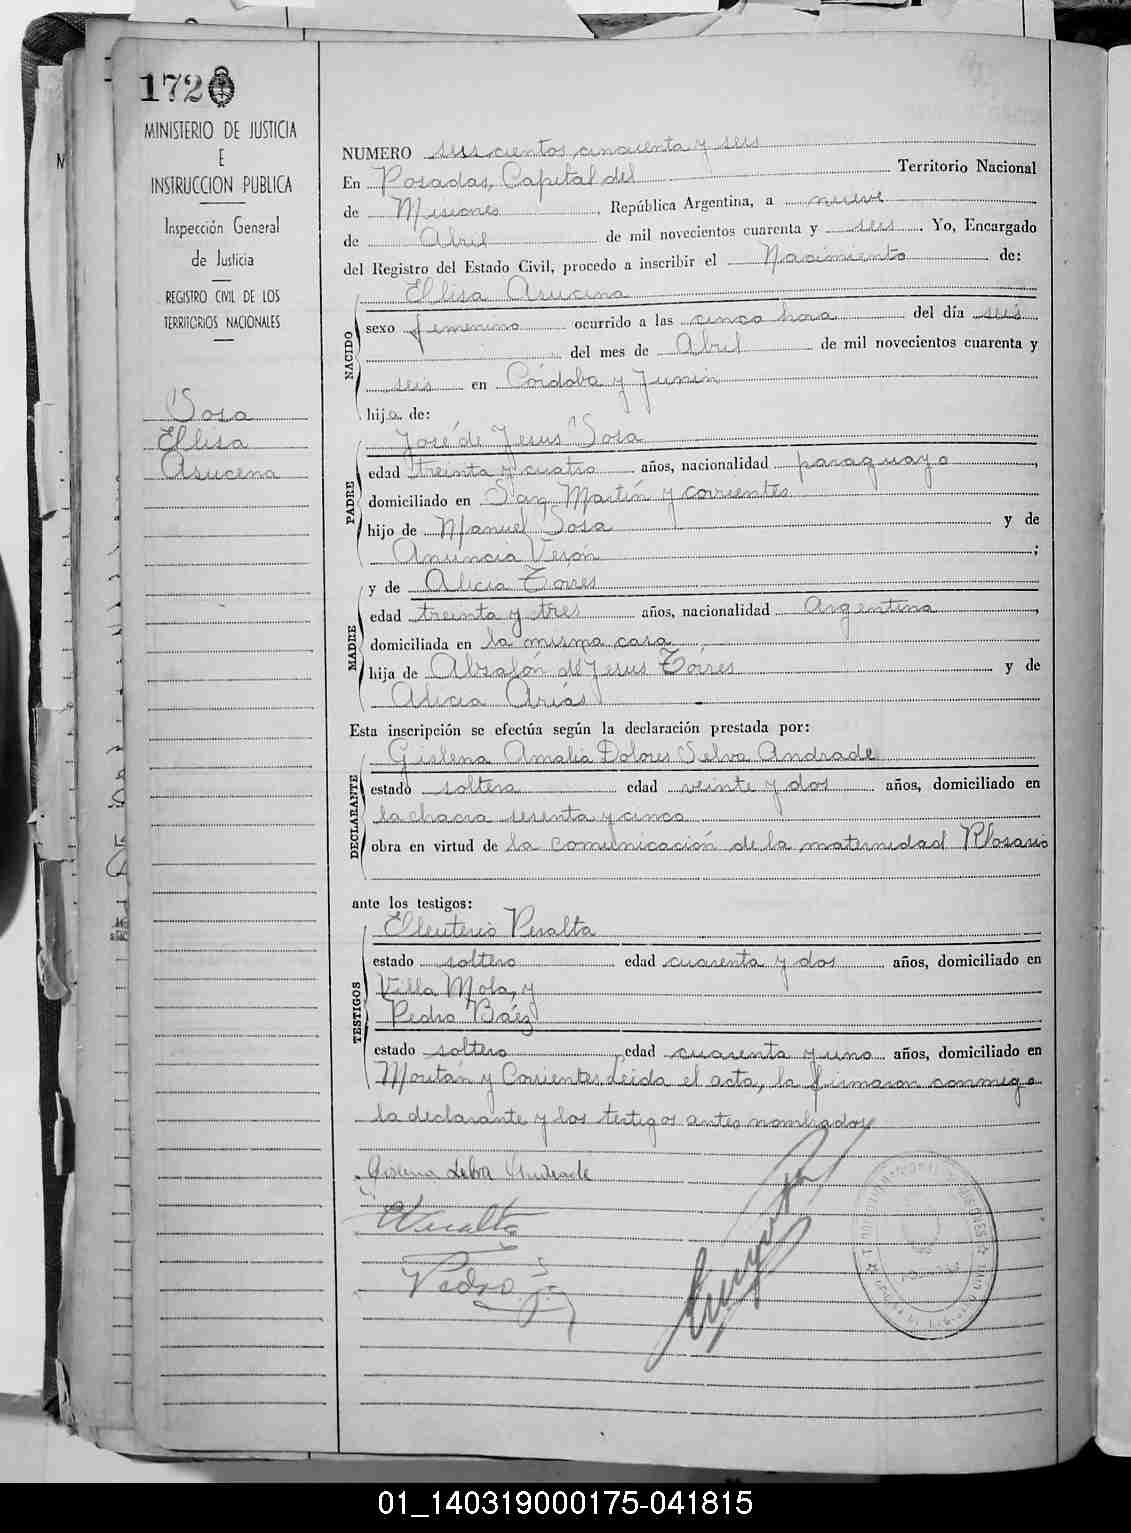 172
MINISTERIO DE JUSTICIA
E
INSTRUCCION PUBLICA
Inspección General
de Justicia
REGISTRO CIVIL DE LOS
TERRITORIOS NACIONALES
Sosa
Ellisa
Asucena
NUMERO seis cientos cincuenta y seis
En Posadas, Capital del Territorio Nacional
de Misiones, República Argentina, a nueve
de Abril de mil novecientos cuarenta y seis. Yo, Encargado
del Registro del Estado Civil, procedo a inscribir el Nacimiento de:
NACIDO
Ellisa Asucena
sexo femenino ocurrido a las cinco hora del día seis
del mes de Abril de mil novecientos cuarenta y
seis en Córdoba y Junin
hija de:
PADRE
José de Jesus Sosa
edad treinta y cuatro años, nacionalidad paraguayo,
domiciliado en San Martín y corrientes
hijo de Manuel Sosa y de
Anuncia Verón;
MADRE
y de Alicia Torres
edad treinta y tres años, nacionalidad Argentina,
domiciliada en la misma casa
hija de Abzalón de Jesus Torres y de
Alicia Arias
Esta inscripción se efectúa según la declaración prestada por:
DECLARANTE
Gislena Amalia Dolores Selva Andrade
estado soltera edad veinte y dos años, domiciliado en
la chacra sesenta y cinco
obra en virtud de la comunicación de la maternidad Rosario
ante los testigos:
TESTIGOS
Elleuterio Peralta
estado soltero edad cuarenta y dos años, domiciliado en
Villa Mola, y
Pedro Báez
estado soltero edad cuarenta y uno años, domiciliado en
y Corrientes. Leida el acta, la firmaron conmigo
la declarante y los testigos antes nombrados
Selva Andrade
EPeralta
Pedro
01_140319000175-041815